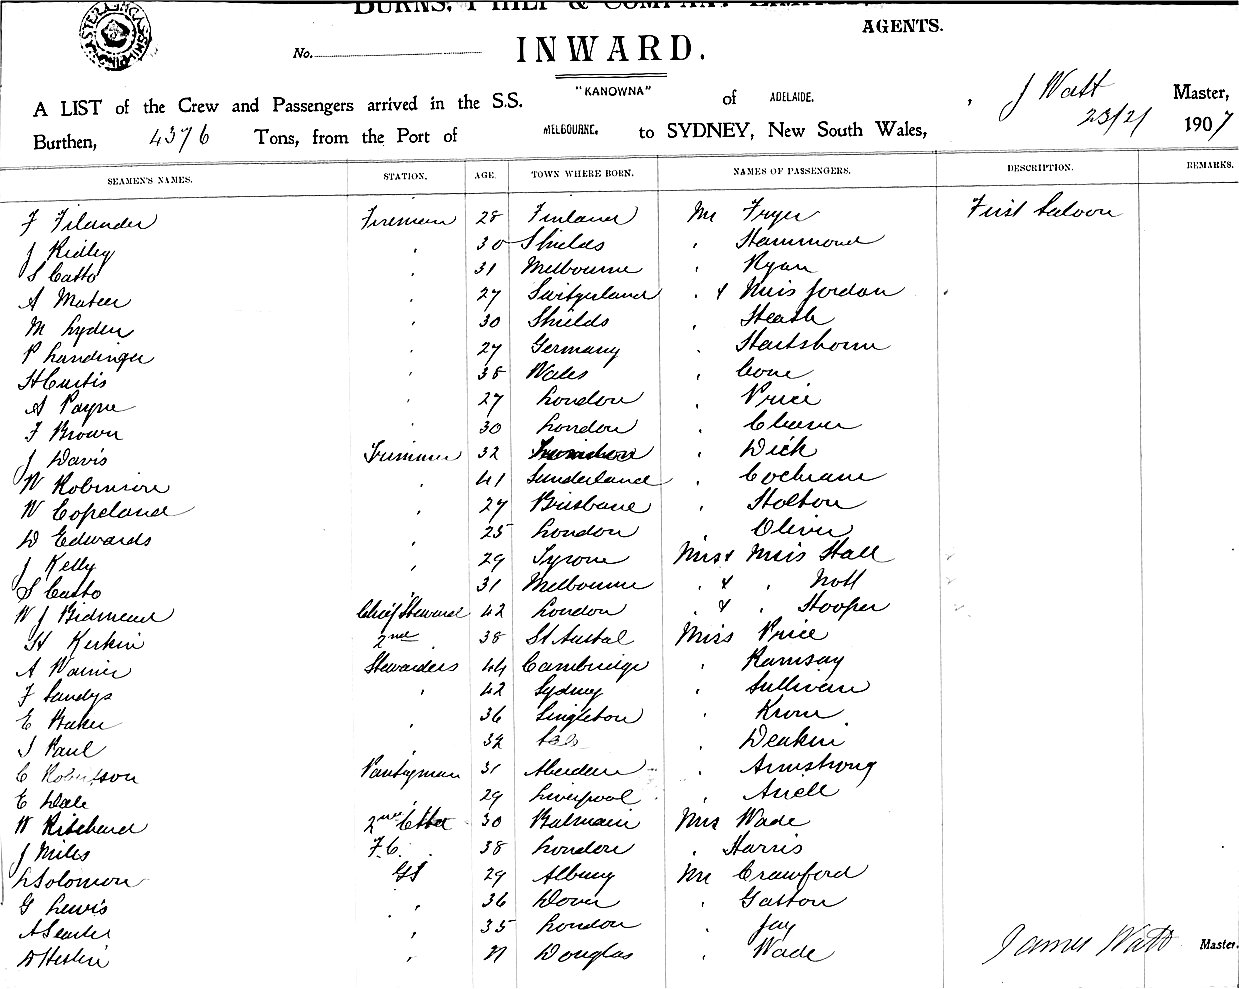 BURNS, PHILP & COMPANY LIMITED.
AGENTS.
No.
INWARD.
A LIST of the Crew and Passengers arrived in the S.S. "KANOWNA" of ADELAIDE. , J Watt Master,
Burthen, 4376 Tons, from the Port of MELBOURNE. to SYDNEY, New South Wales, 23/2/ 1907
SEAMEN'S NAMES. STATION. AGE. TOWN WHERE BORN. NAMES OF PASSENGERS. DESCRIPTION. REMARKS.
F Filander Fireman 28 Finland Mr Fryer First Saloon
J Ridley " 30 Shields " Hammond
S Catto " 31 Melbourne " Ryan
A Mateer " 27 Switzerland " & Miss Jordan
M Lyden " 30 Shields " Heath
P Landinger " 27 Germany " Hartshorn
H Curtis " 38 Wales " Cone
A Payne " 27 London " Price
F Brown " 30 London "
J Davis Trimmer 32 " Dick
W Robinson " 41 Sunderland " Cochrane
W Copeland " 27 Brisbane " Holton
D Edwards " 25 London " Oliver
J Kelly " 29 Tyrone Mrs & Miss Hall
S Catto " 31 Melbourne " & " Nott
W J Bidmead Chief Steward 42 London " & " Hooper
H Kerkin 2nd 38 St Austal Miss Price
A Warrie Stewardess 44 Cambridge " Ramsay
F Sandys " 42 Sydney " Sullivan
E Baker " 36 Singleton " Krone
J Paul " 32 " Deakin
C Robertson Pantryman 31 Aberdeen " Armstrong
E Dale " 29 Liverpool " Ariell
W Ritchard 2nd 30 Balmain Mrs Wade
J Miles F.C. 38 London " Harris
L Solomon GS 29 Albury Mr Crawford
G Lewis " 36 Dover " Gatton
A " 35 London " Jay
D Heslin " 21 Douglas " Wade
James Watt Master.